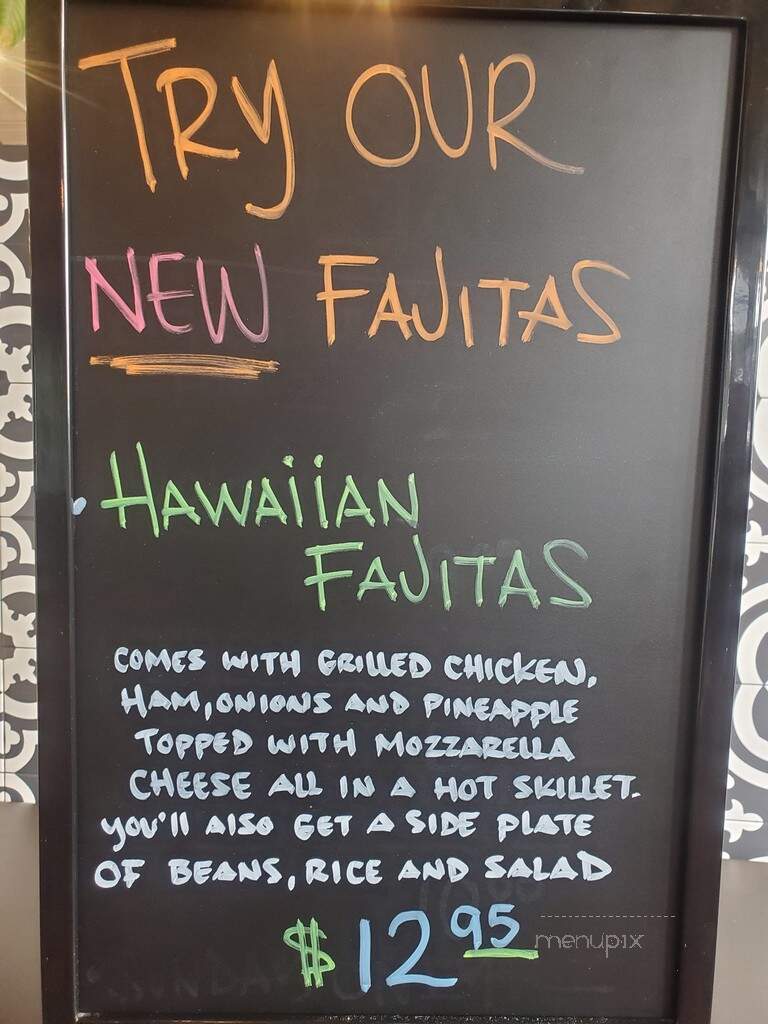 TRY OUR
NEW FAJITAS
HAWAiiAN
FAJITAS
COMES WITH GRILLED CHICKEN,
HAM, ONIONS AND PINEAPPLE
TOPPED WITH MOZZARELLA
CHEESE ALL IN A HOT SKILLET.
YOU'll AlSO GET A SIDE PlATE
OF BEANS, RICE AND SALAD
$12 95
menupix